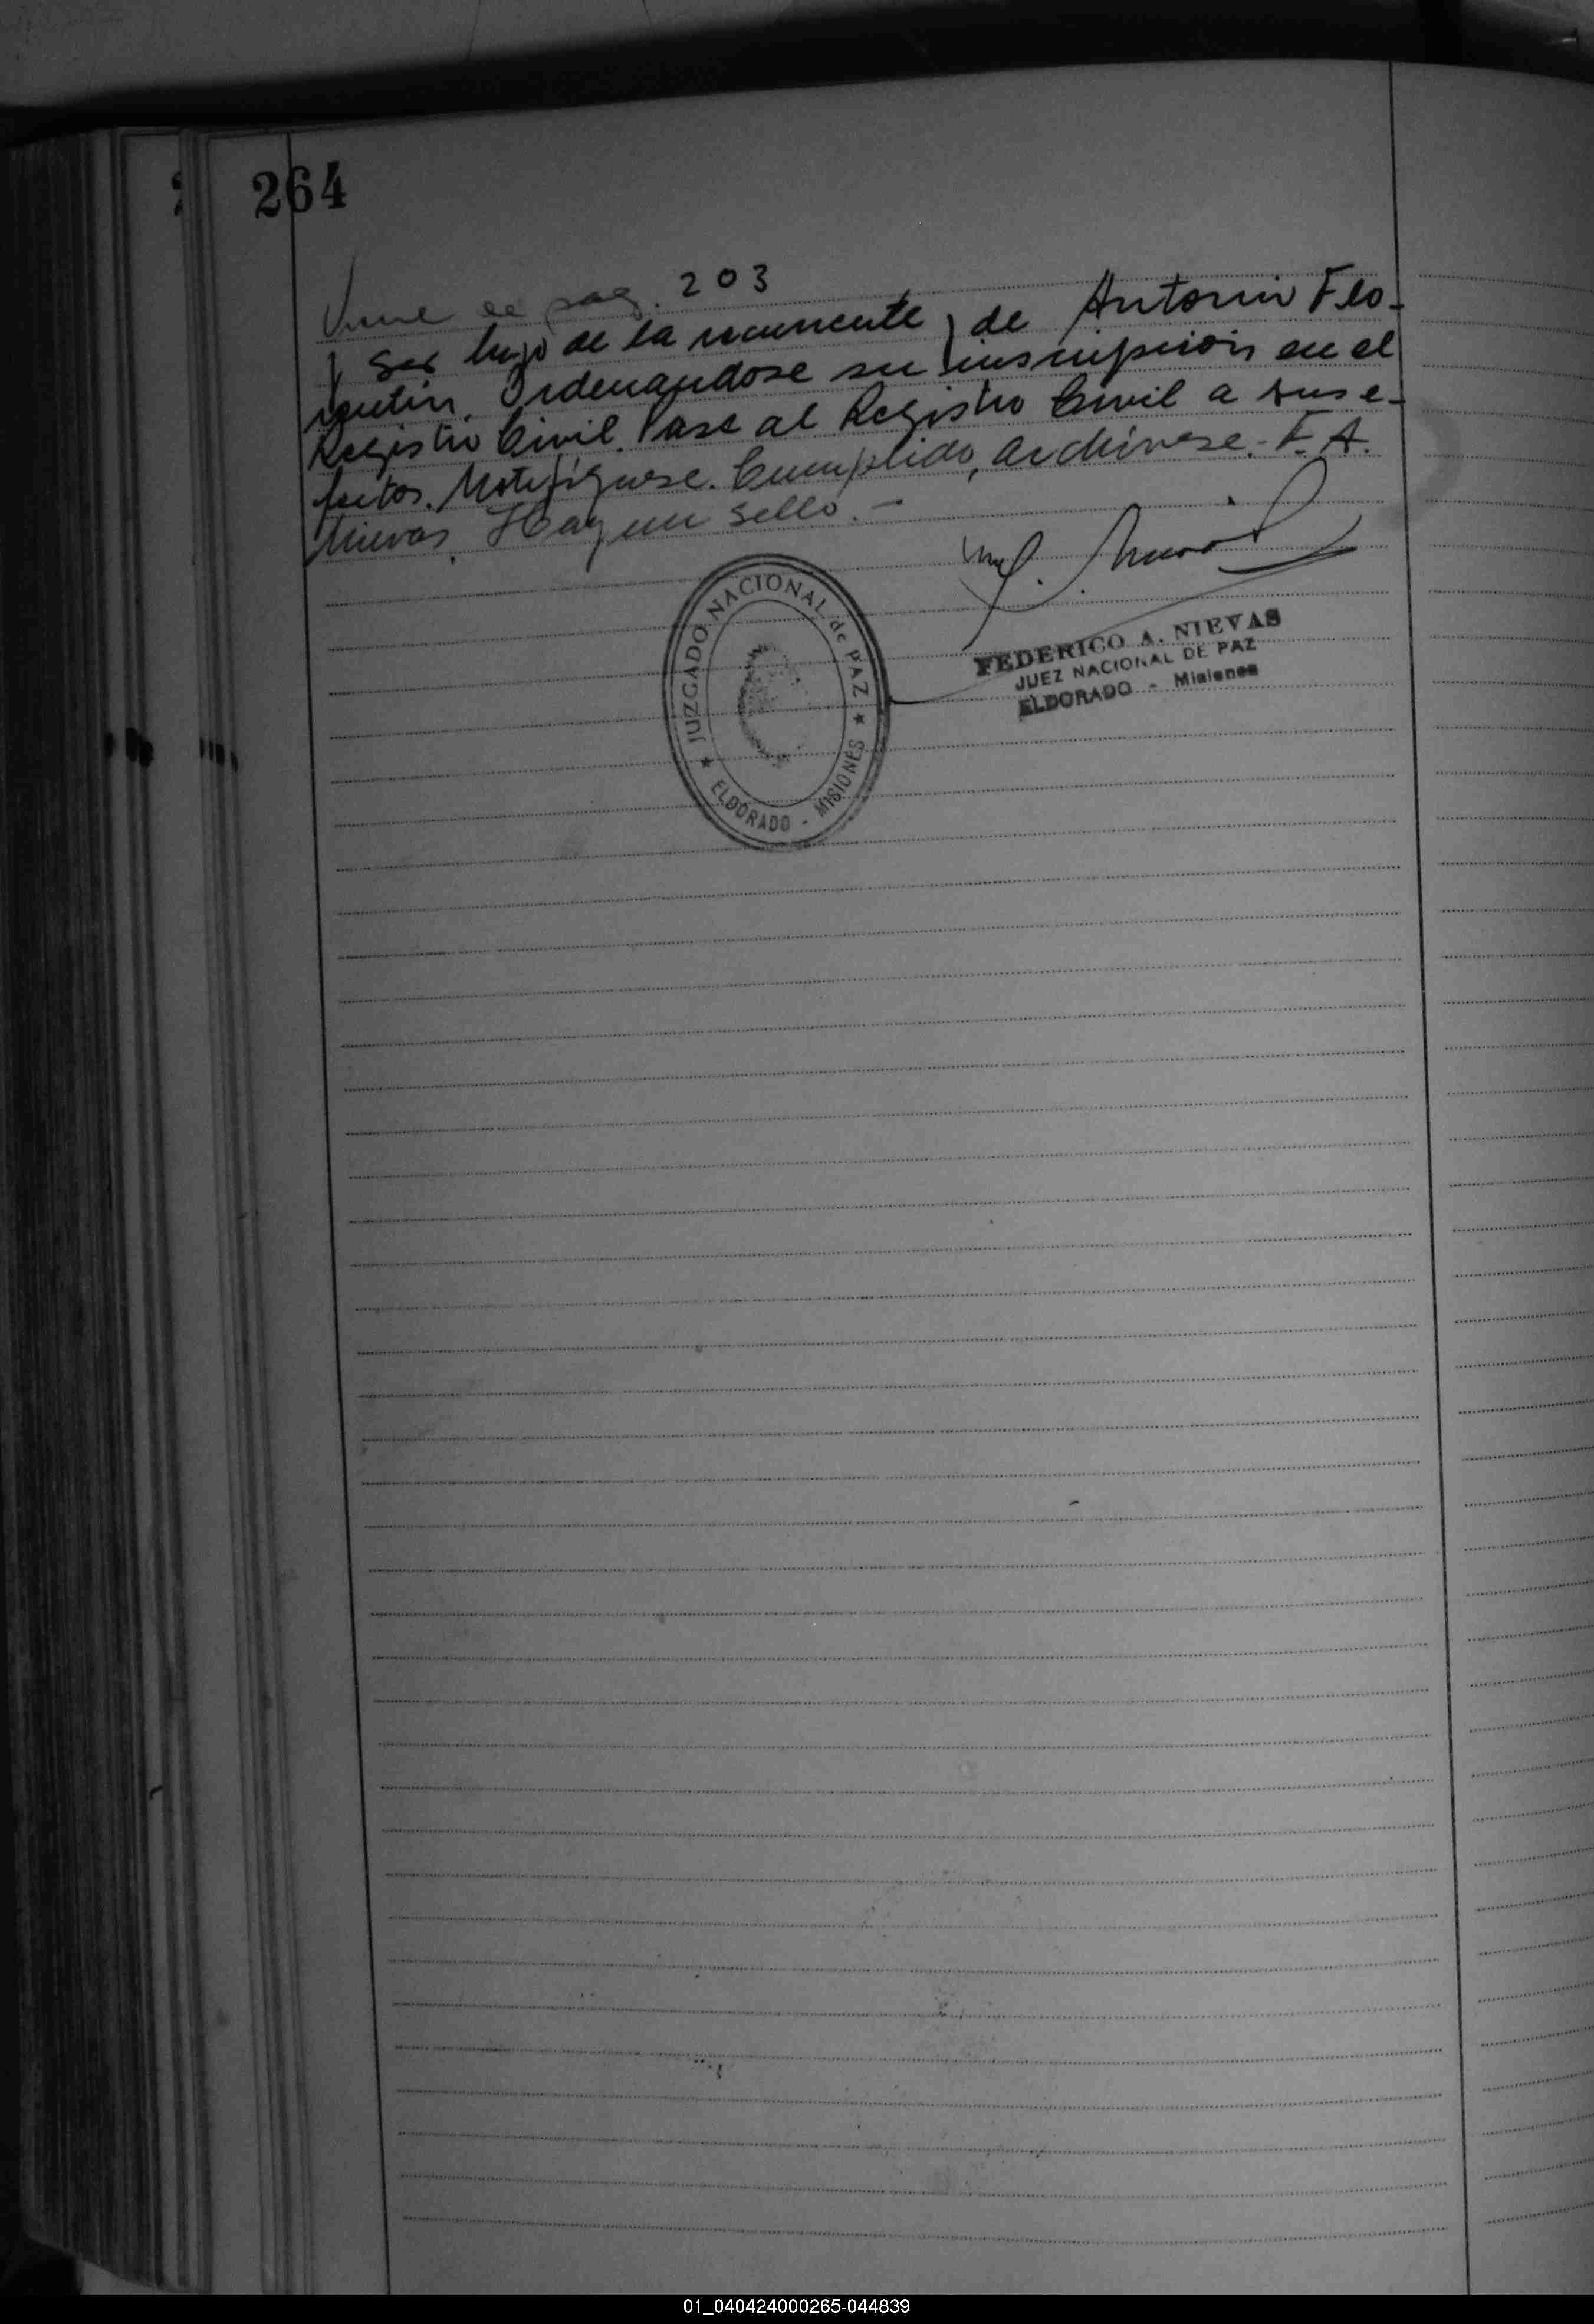 264
Viene de pag. 203
y ser hijo de la recurrente y de Antonio Flo-
rentin. Ordenandose su inscripción en el
Registro Civil. Pase al Registro Civil a sus e-
fectos. Notifíquese. Cumplido, archívese.- F. A.
Nievas. Hay un sello.-
JUZGADO NACIONAL de PAZ
ELDORADO - MISIONES
FEDERICO A. NIEVAS
JUEZ NACIONAL DE PAZ
ELDORADO - Misiones
01_040424000265-044839